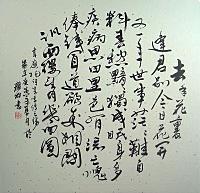 去年花裏
逢君别今日花开
又一年世事茫茫難自
料春愁黯黯獨成眠身多
疾病思田里邑有流亡愧
俸錢聞道欲来相問
訊西樓望月幾回圓